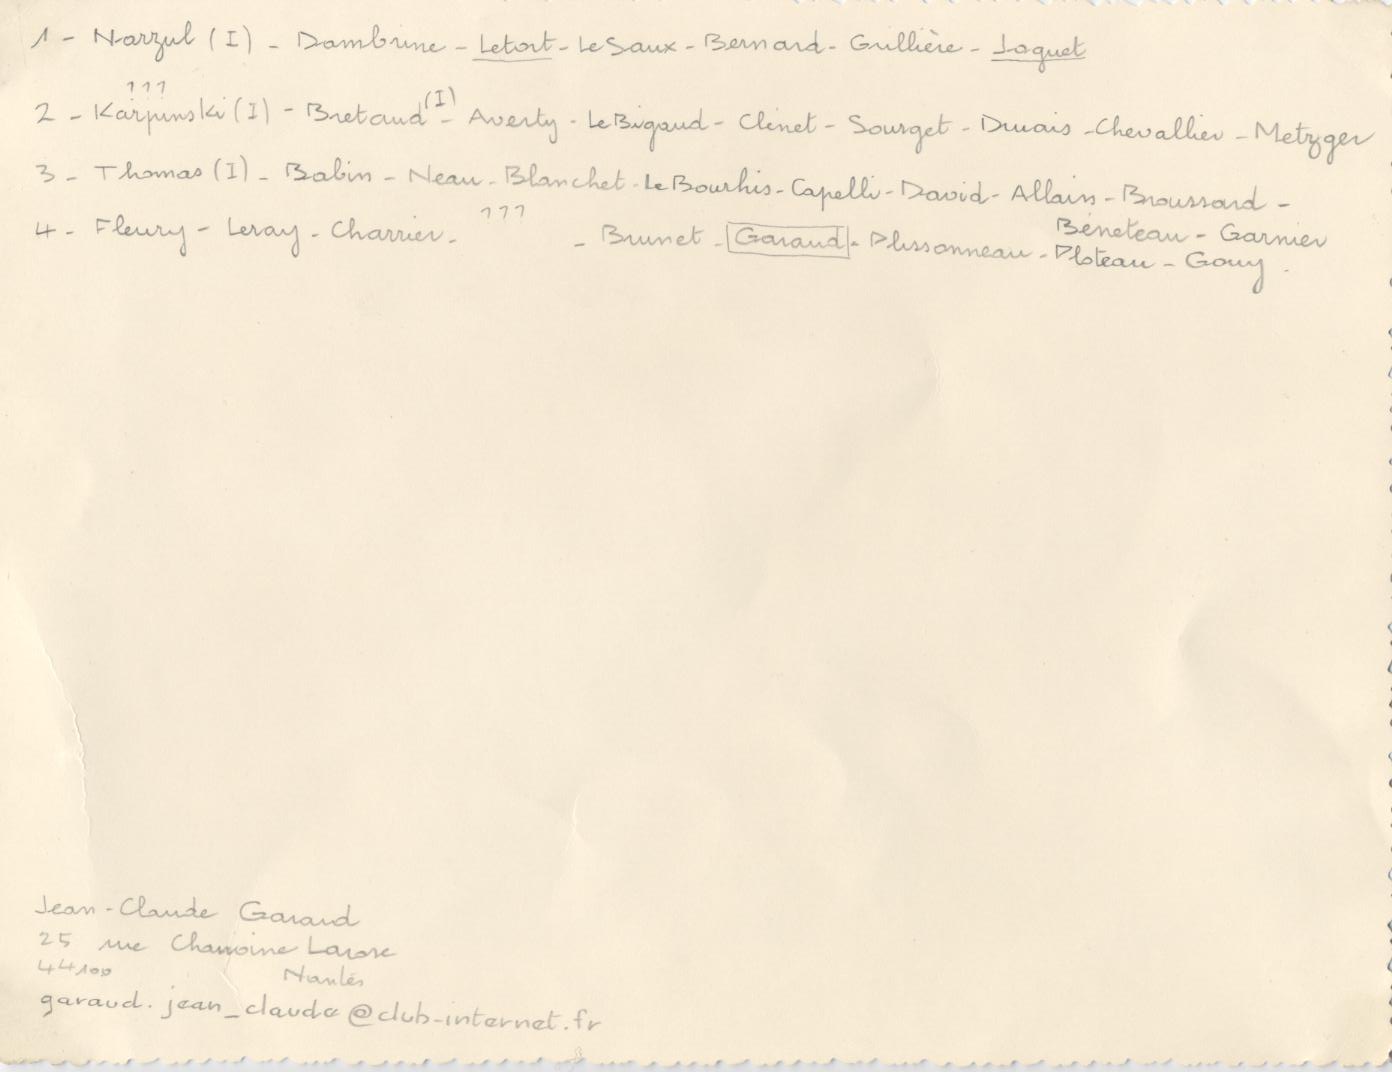 1 - Narzul (I) - Dambrine - Letort - Le Saux - Bernard - Grullière - Jaguet
???
2 - Karpinski (I) - Bretaud (I) - Averty - Le Bigaud - Clénet - Sourget - Chevallier - Metzger
3 - Thomas (I) - Babin - Neau - Blanchet - Le Bourhis - Capelli - David - Allain - Broussard -
4 - Fleury - Leray - Charrier - ??? - Brunet - Garaud - Plissonneau - Béneteau - Garnier
Ploteau - Gouy .
Jean-Claude Garaud
25 rue Chanoine Larose
44100 Nantes
garaud.jean_claude@club-internet.fr